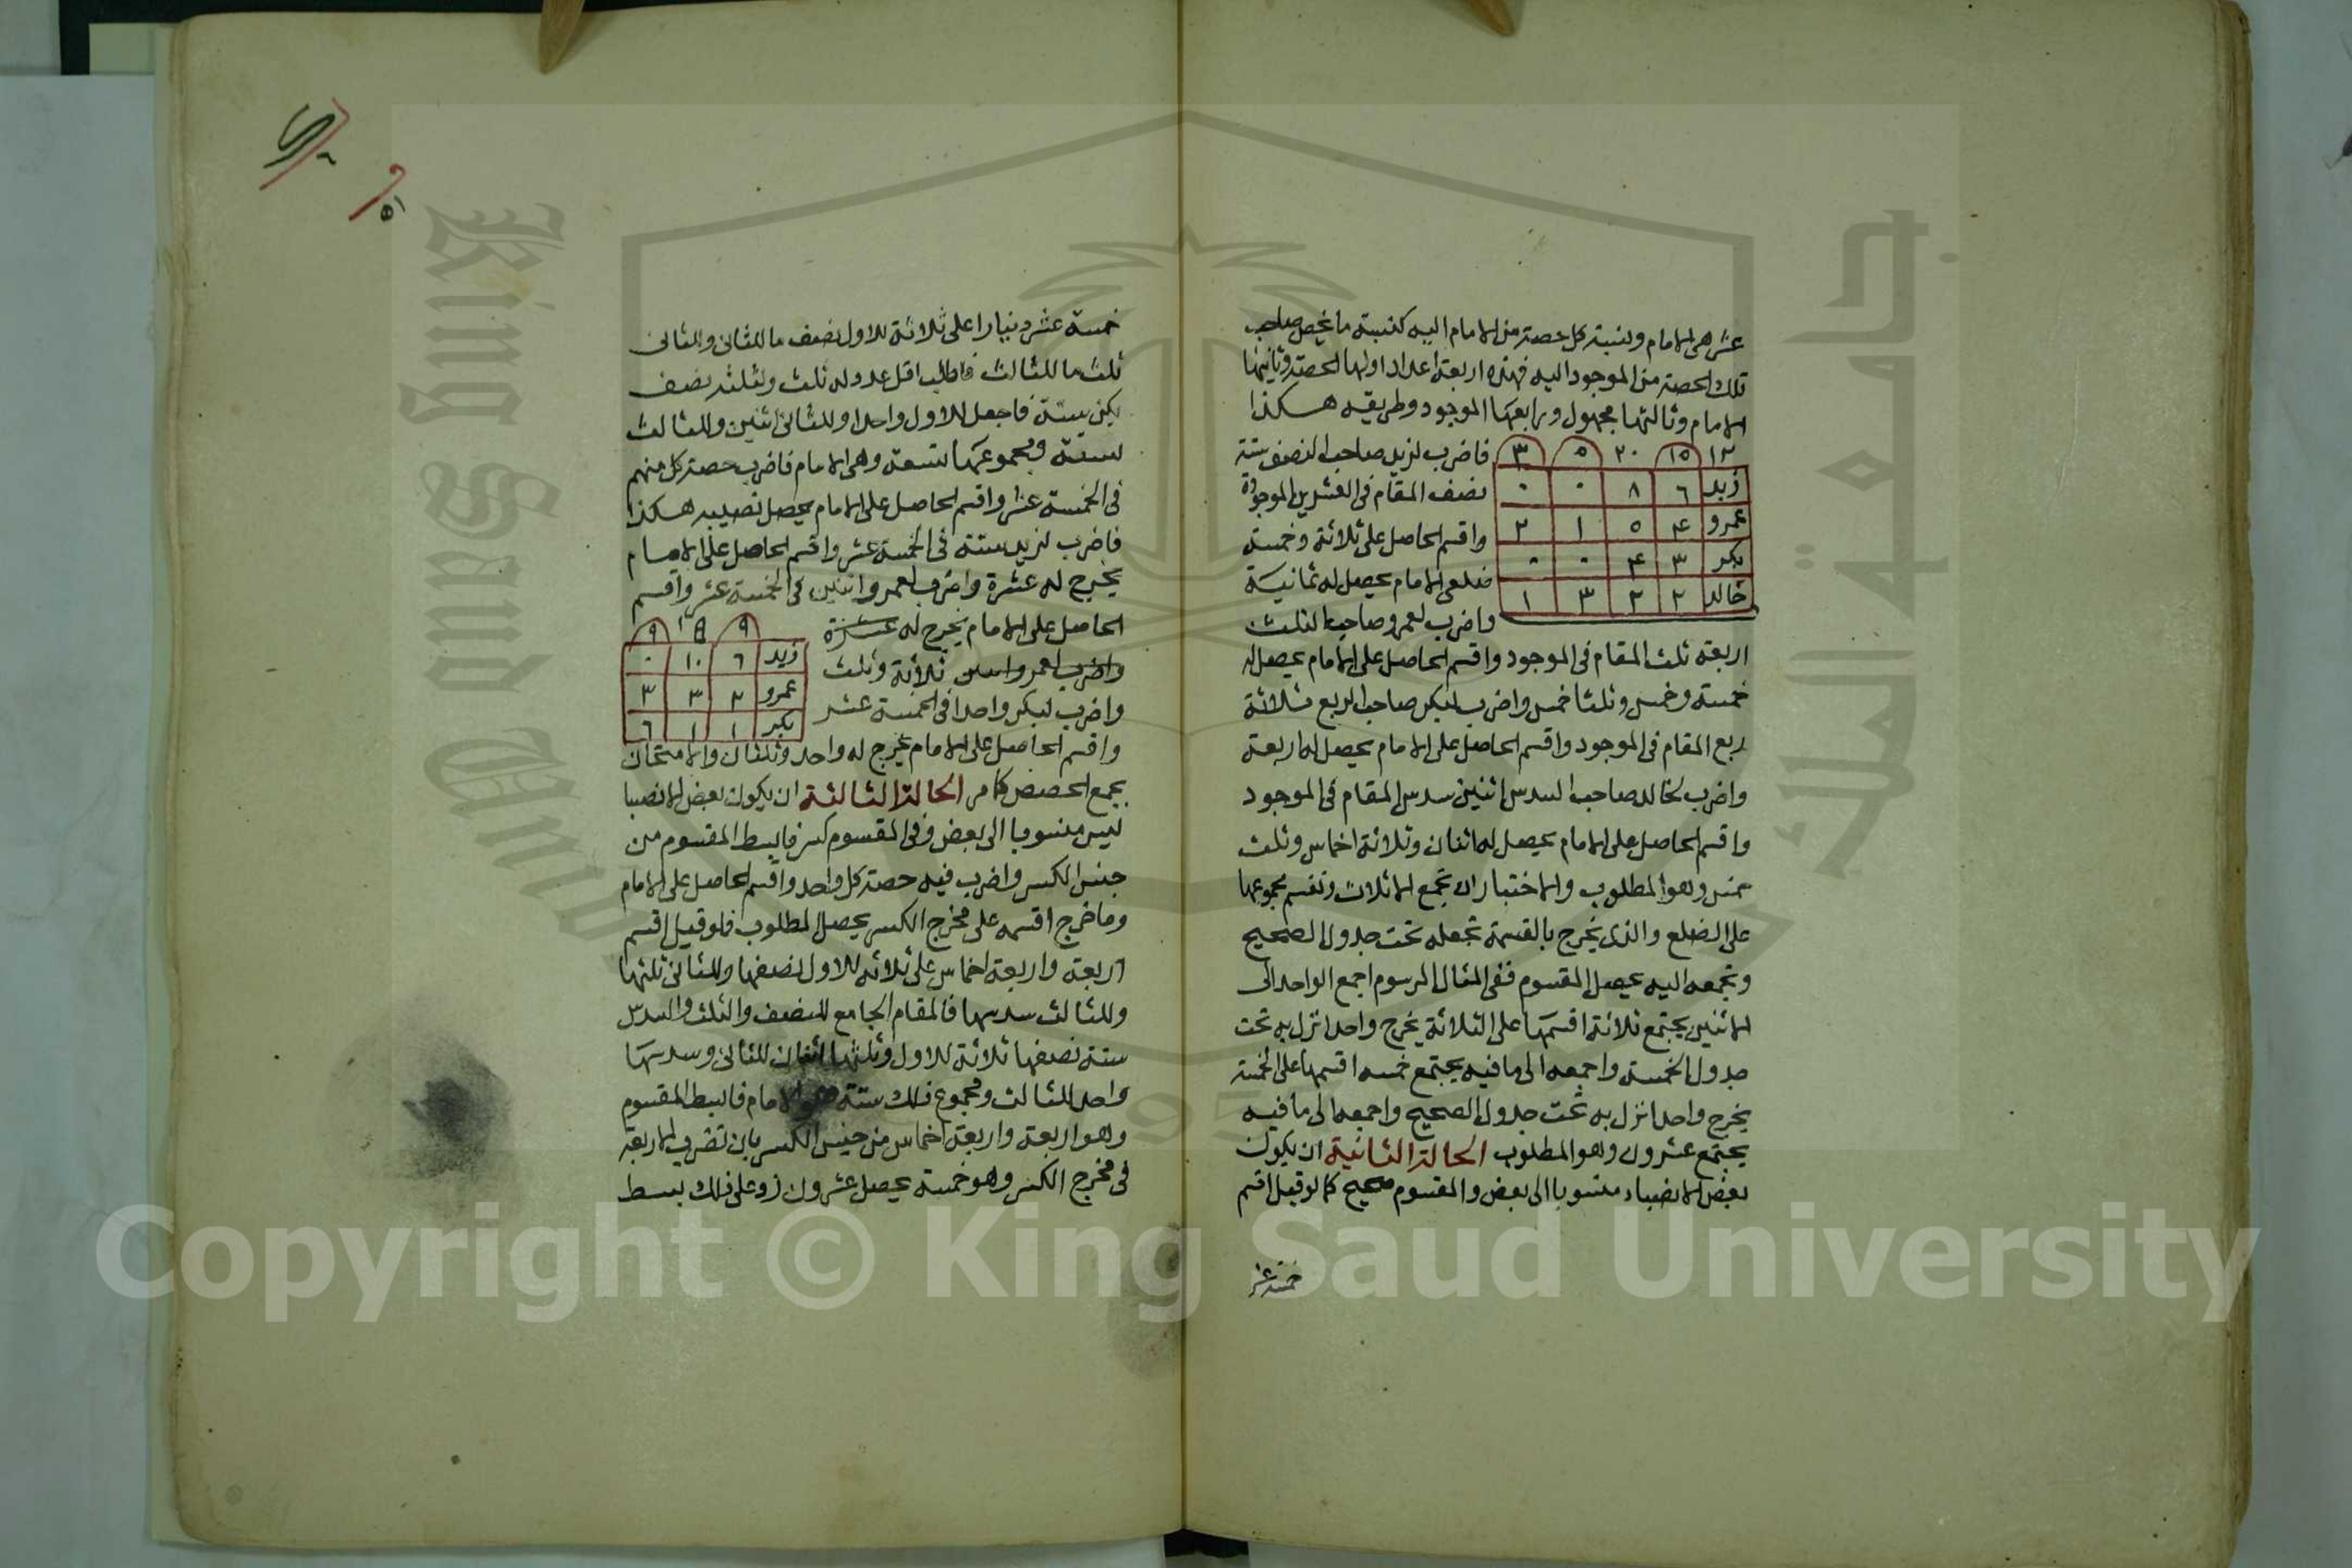 عشر هى الامام ونسبة كل حصة من الامام اليه كنسبة ما يخص صاحب
تلك الحصة من الموجود اليه فهذه اربعة اعداد اولها الحصة وثانيها
الامام وثالثها مجهول ورابعها الموجود وطريقه هكذا
١٢ ١٥ ٢٠ ٥ ٣
زيد ٦ ٨ ٠ ٠
عمرو ٤ ٥ ١ ٢
بكر ٣ ٤ ٠ ٠
خالد ٢ ٢ ٣ ١
فاضرب لزيد صاحب النصف ستة
نصف المقام فى العشرين الموجودة
واقسم الحاصل على ثلاثة وخمسة
ضلعى الامام يحصل له ثمانية
واضرب لعمرو صاحب الثلث
اربعة ثلث المقام فى الموجود واقسم الحاصل على الامام يحصل له
خمسة وخمس وثلثا خمس واضرب لبكر صاحب الربع ثلاثة
ربع المقام فى الموجود واقسم الحاصل على الامام يحصل له اربعة
واضرب لخالد صاحب السدس اثنين سدس المقام فى الموجود
واقسم الحاصل على الامام يحصل له اثنان وثلاثة اخماس وثلث
خمس وهو المطلوب والاختبار ان تجمع الاثلاث وتقسم مجموعها
على الضلع والذى يخرج بالقسمة تجعله تحت جدول الصحيح
وتجمعه اليه يحصل المقسوم ففى المثال المرسوم اجمع الواحد الى
الاثنين يجتمع ثلاثة اقسمها على الثلاثة يخرج واحد انزل به تحت
جدول الخمسة واجمعه الى ما فيه يجتمع خمسه اقسمها على الخمسة
يخرج واحد انزل به تحت جدول الصحيح واجمعه الى ما فيه
يجتمع عشرون وهو المطلوب الحالة الثانية ان يكون
بعض الانصباء منسوبا الى بعض والمقسوم صحيح كما لو قيل اقسم
خمسة عشر
خمسة عشر دينارا على ثلاثة للاول نصف ما للثانى وللثانى
ثلث ما للثالث فاطلب اقل عدد له ثلث ولثلثه نصف
يكن ستة فاجعل للاول واحدا وللثانى اثنين وللثالث
ستة ومجموعها تسعة وهى الامام فاضرب حصة كل منهم
فى الخمسة عشر واقسم الحاصل على الامام يحصل نصيبه هكذا
فاضرب لزيد ستة فى الخمسة عشر واقسم الحاصل على الامام
يخرج له عشرة واضرب لعمرو اثنين فى الخمسة عشر واقسم
الحاصل على الامام يخرج له عشرة
واضرب لعمرو اثنين ثلاثة وثلث
واضرب لبكر واحدا فى الخمسة عشر
٩ ١٥ ٩
زيد ٦ ١٠ ٠
عمرو ٢ ٣ ٣
بكر ١ ١ ٦
واقسم الحاصل على الامام يخرج له واحد وثلثان والامتحان
بجمع الحصص كما مر الحالة الثالثة ان يكون بعض الانصبا
ليس منسوبا الى بعض وفى المقسوم كسر فابسط المقسوم من
جنس الكسر واضرب فيه حصة كل واحد واقسم الحاصل على الامام
وما خرج اقسمه على مخرج الكسر يحصل المطلوب فلو قيل اقسم
اربعة واربعة اخماس على ثلاثه للاول نصفها وللثانى ثلثها
وللثالث سدسها فالمقام الجامع للنصف والثلث والسدس
ستة نصفها ثلاثة للاول وثلثها اثنان للثانى وسدسها
واحد للثالث ومجموع ذلك ستة هو الامام فابسط المقسوم
وهو اربعة واربعة اخماس من جنس الكسر بان تضرب الاربعة
فى مخرج الكسر وهو خمسة يحصل عشرون زد على ذلك بسط
Copyright © King Saud University
King Saud University
جامعة الملك